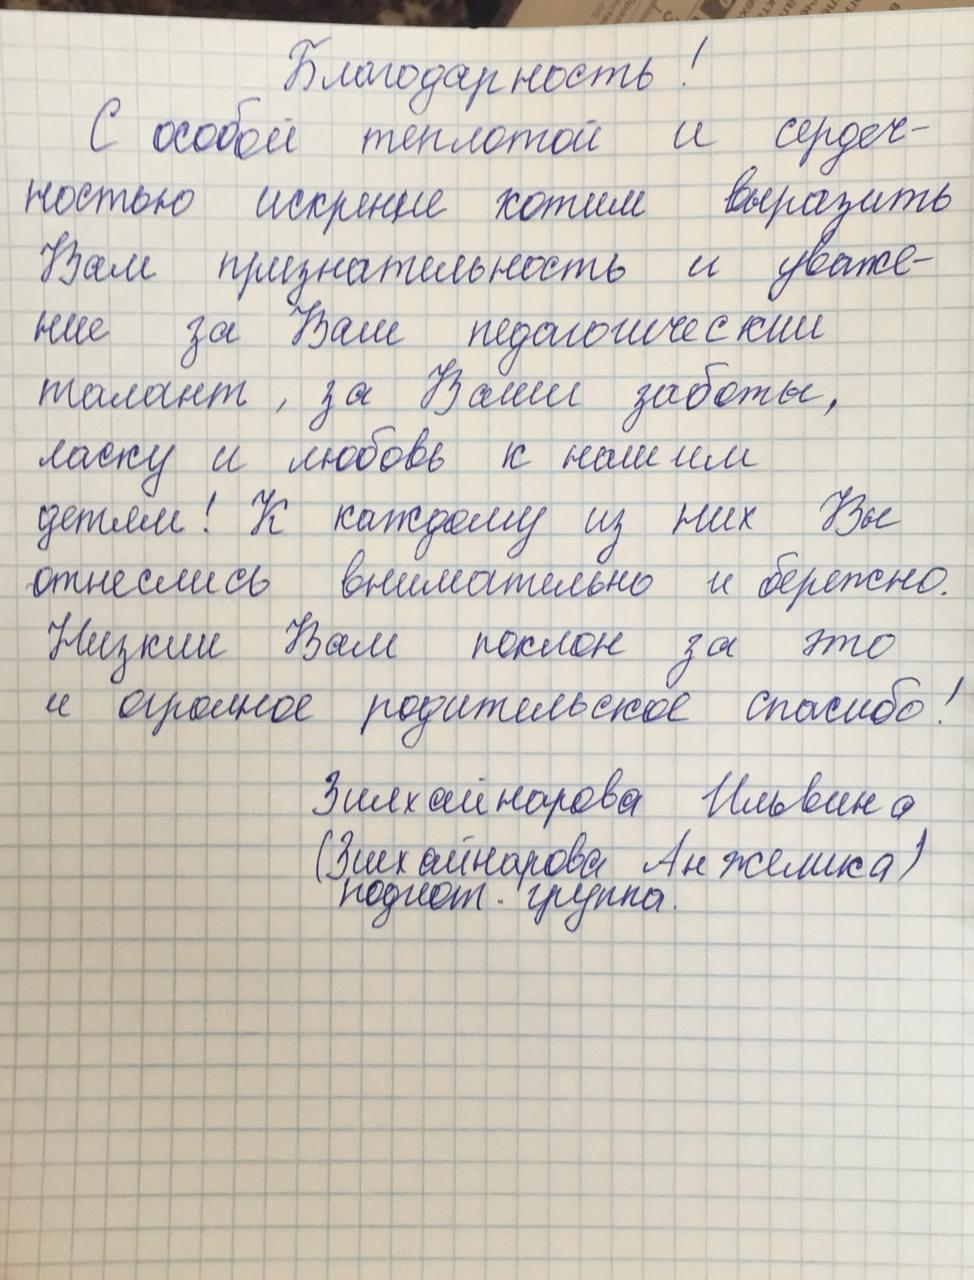 Благодарность!
С особой теплотой и сердеч-
ностью искренне хотим выразить
Вам признательность и уваже-
ние за Ваш педагогический
талант, за Ваши заботы,
ласку и любовь к нашим
детям! К каждому из них Вы
отнеслись внимательно и бережно.
Низкий Вам поклон за это
и огромное родительское спасибо!
Зилхайнарова Ильвина
(Зилхайнарова Анжелика)
подгот. группа.